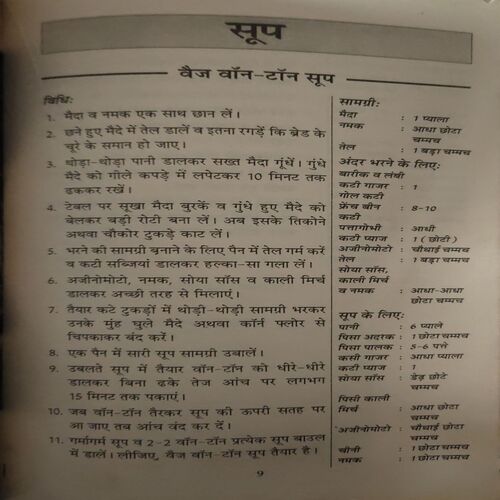 सूप
वैज वॉन-टॉन सूप
विधिः
1. मैदा व नमक एक साथ छान लें।
2. छने हुए मैदे में तेल डालें व इतना रगड़ें कि ब्रैड के
चूरे के समान हो जाए।
3. थोड़ा-थोड़ा पानी डालकर सख्त मैदा गूंधें। गुंधे
मैदे को गीले कपड़े में लपेटकर 10 मिनट तक
ढककर रखें।
4. टेबल पर सूखा मैदा बुरकें व गुंधे हुए मैदे को
बेलकर बड़ी रोटी बना लें। अब इसके तिकोने
अथवा चौकोर टुकड़े काट लें।
5. भरने की सामग्री बनाने के लिए पैन में तेल गर्म करें
व कटी सब्जियां डालकर हल्का-सा गला लें।
6. अजीनोमोटो, नमक, सोया सॉस व काली मिर्च
डालकर अच्छी तरह से मिलाएं।
7. तैयार कटे टुकड़ों में थोड़ी-थोड़ी सामग्री भरकर
उनके मुंह घुले मैदे अथवा कॉर्न फ्लोर से
चिपकाकर बंद करें।
8. एक पैन में सारी सूप सामग्री उबालें।
9. उबलते सूप में तैयार वॉन-टॉन को धीरे-धीरे
डालकर बिना ढके तेज आंच पर लगभग
15 मिनट तक पकाएं।
10. जब वॉन-टॉन तैरकर सूप की ऊपरी सतह पर
आ जाए तब आंच बंद कर दें।
11. गर्मागर्म सूप व 2-2 वॉन-टॉन प्रत्येक सूप बाउल
में डालें। लीजिए, वैज वॉन-टॉन सूप तैयार है।
सामग्रीः
मैदा : 1 प्याला
नमक : आधा छोटा
चम्मच
तेल : 1 बड़ा चम्मच
अंदर भरने के लिएः
बारीक व लंबी
कटी गाजर : 1
गोल कटी
फ्रेंच बीन : 8-10
कटी
पत्तागोभी : आधी
कटी प्याज : 1 (छोटी)
अजीनोमोटो : चौथाई चम्मच
तेल : 1 बड़ा चम्मच
सोया सॉस,
काली मिर्च
व नमक : आधा-आधा
छोटा चम्मच
सूप के लिएः
पानी : 6 प्याले
पिसा अदरक : 1 छोटा चम्मच
पिसा पालक : 5-6 पत्ते
कसी गाजर : आधा प्याला
कटी प्याज : 1
सोया सॉस : डेढ़ छोटे
चम्मच
पिसी काली
मिर्च : आधा छोटा
चम्मच
अजीनोमोटो : चौथाई छोटा
चम्मच
चीनी : 1 छोटा चम्मच
नमक : 1 छोटा चम्मच
9